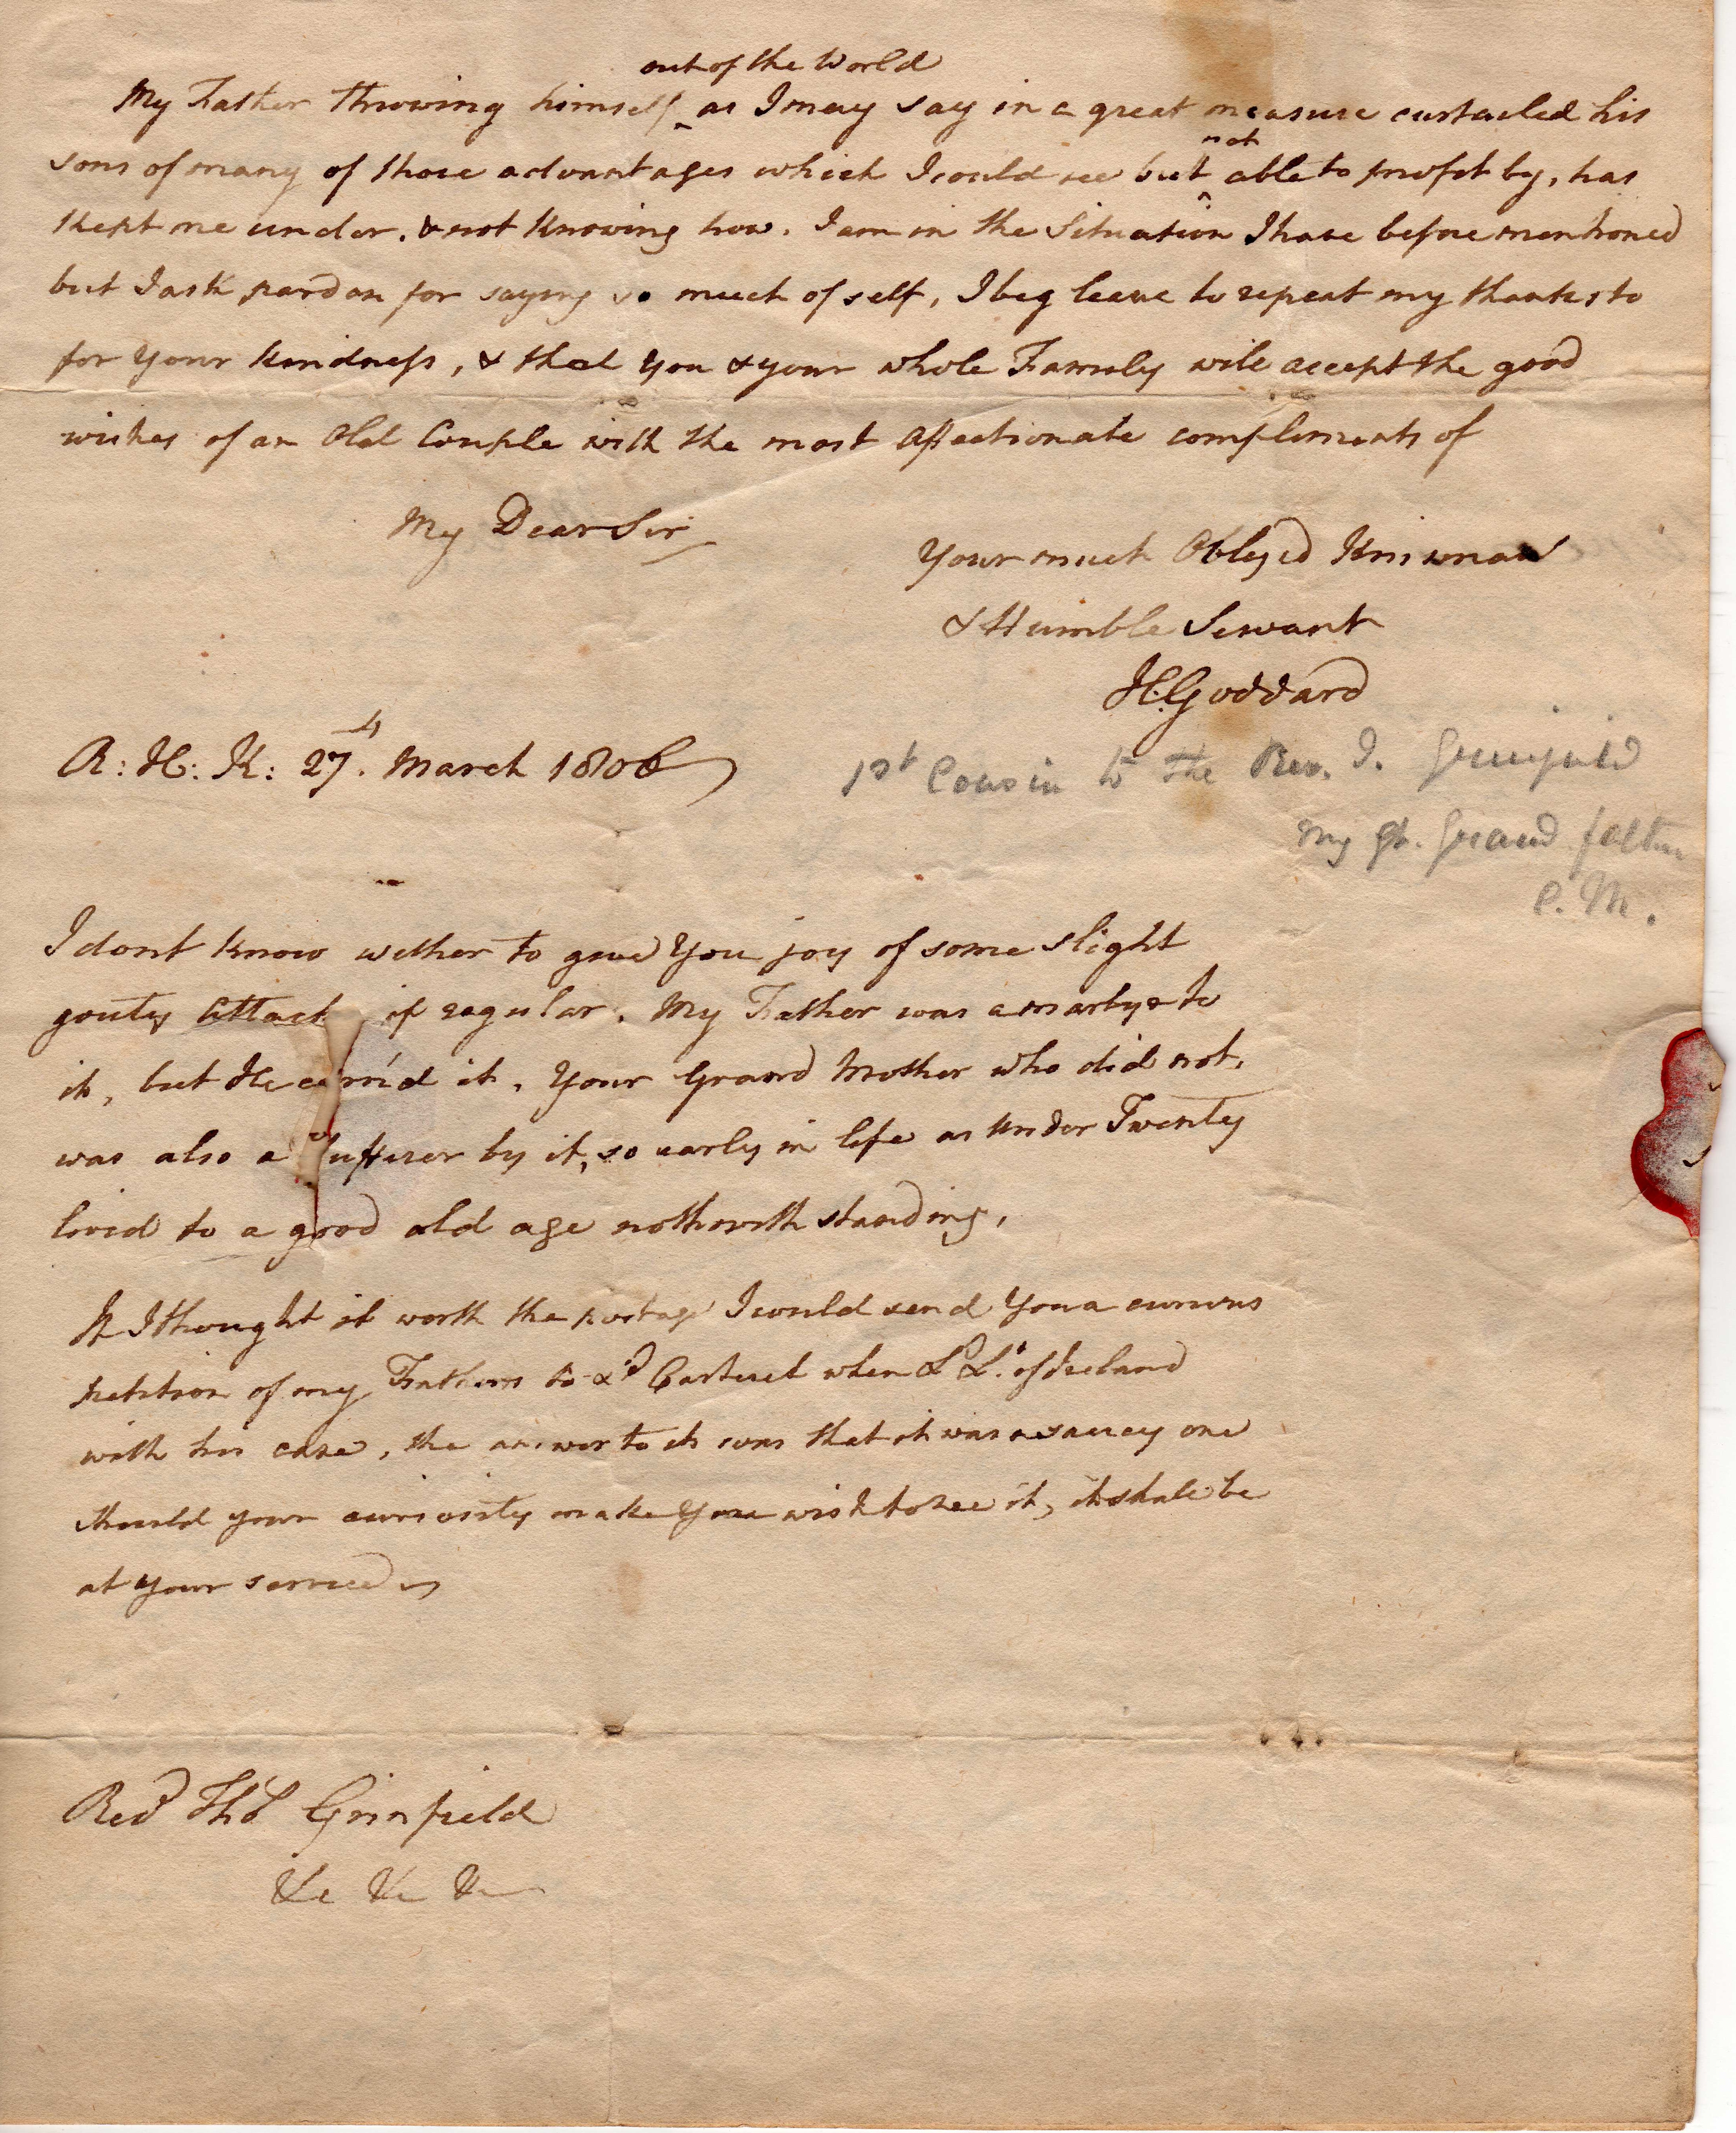 out of the World
My Father throwing himself ^ as I may say in a great measure curtailed his
not
sons of many of those advantages which I could see but ^ able to profit by, has
kept me under, & not knowing how. I am in the Situation I have before mentioned
but I ask pardon for saying so much of self, I beg leave to repeat my thanks to
for your kindness, & that you & your whole Family will accept the good
wishes of an Old Couple with the most affectionate compliments of
My Dear Sir
Your much Obleged Kinsman
& Humble Servant
H: Goddard
R: H: K: 27th. March 1806
1st Cousin to the Rev. I. Grinfield
my gt. Grand father
C. M.
I dont know wether to give You joy of some slight
gouty Attack if regular. My Father was a martyr to
it, but He earn'd it, Your Grand Mother who did not,
was also a Sufferer by it, so early in life as under Twenty
lived to a good old age nothwithstanding,
If I thought it worth the postage I would send You a curious
petition of my Fathers to Ld Carteret when Ld Lt. of Ireland
with his case, the answer to it was that it was a saucy one
should your curiosity make You wish to see it, it shall be
at your service
Revd Thos Grinfield
&c &c &c